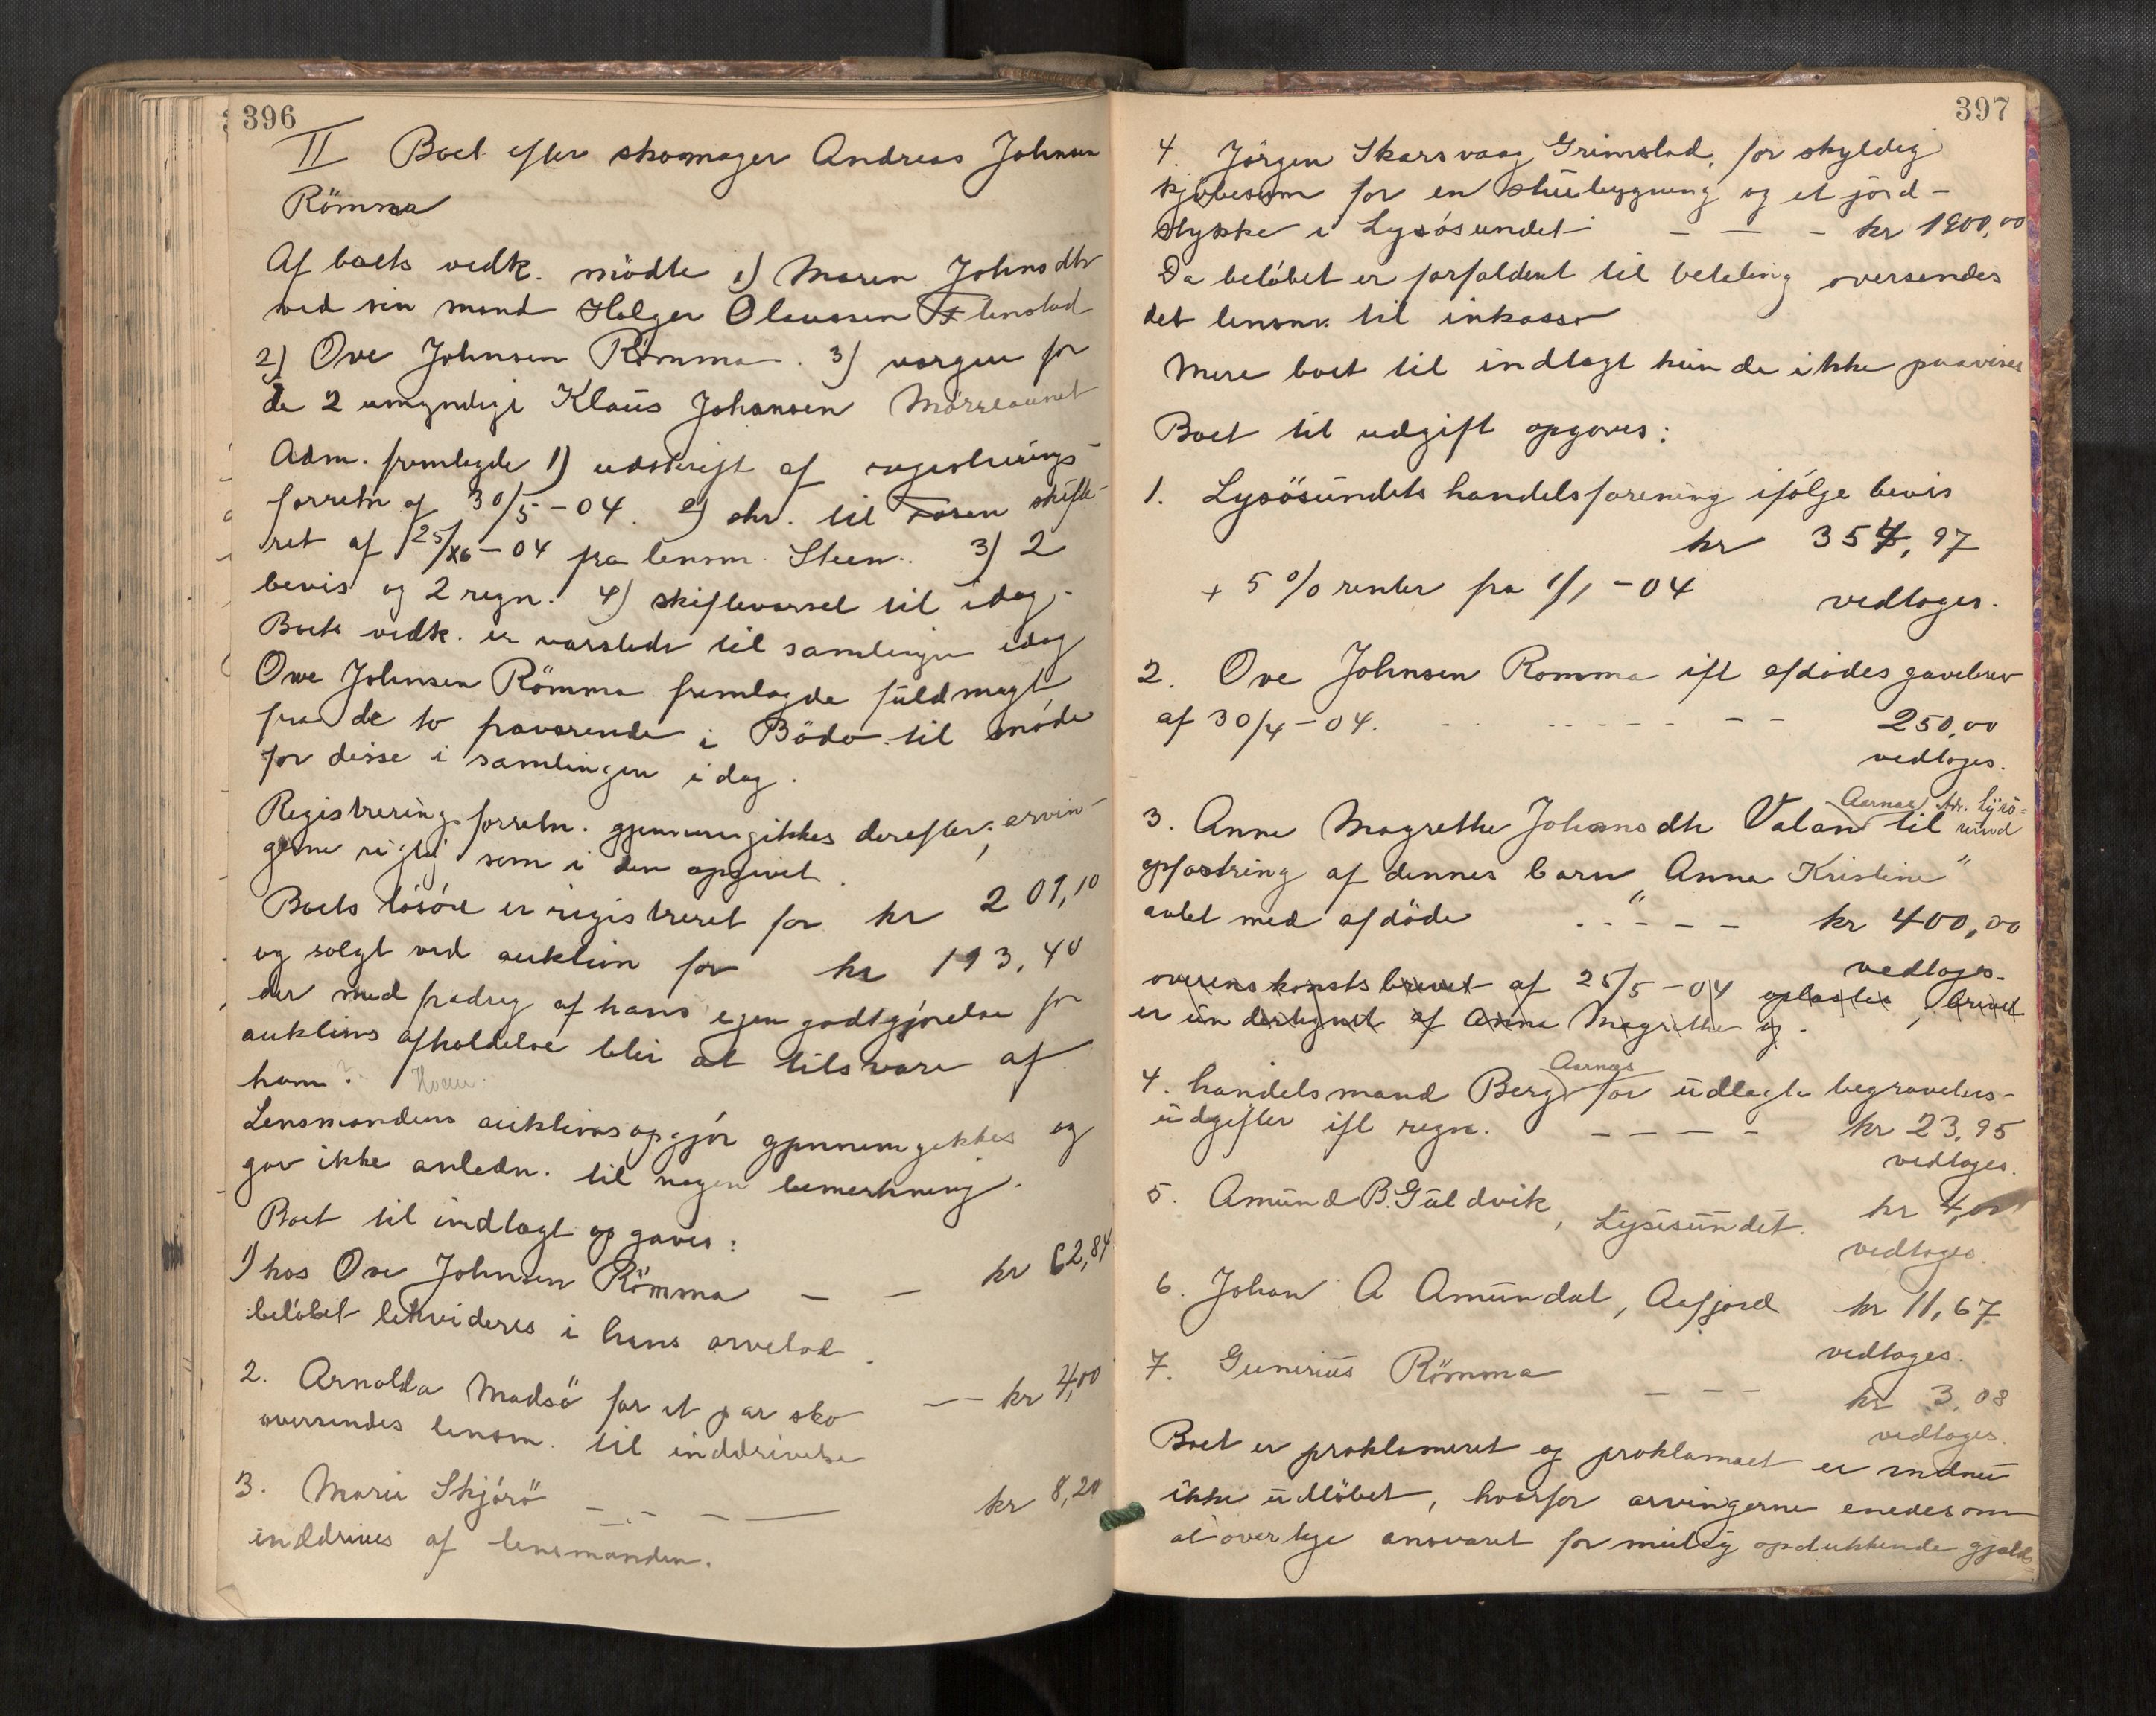 396
II Boet efter skomager Andreas Johnsen
Römma
Af boets vedk. mödte 1) Maren Johnsdtr
ved sin mand Holger Olaussen Stenstad
2) Ove Johnsen Römma. 3) vergen for
de 2 umyndige Klaus Johansen Mörreaunet
Adm. fremlagde 1) udskrift af registrerings-
forretn af 30/5-04. 2) skr. til Fosen skifte-
ret af 25/6-04 fra lensm. Steen. 3) 2
bevis og 2 regn. 4) skiftevarsel til idag.
Boets vedk. er varslede til samlingen idag
Ove Johnsen Römma fremlagde fuldmagt
fra de to fraværende i Bodö til möde
for disse i samlingen idag.
Registreringsforretn. gjennemgikkes derefter; arvin-
gerne som i den opgivet.
Boets lösöre er registreret for kr 201,10
og solgt ved auktion for kr 193,40
der med fradrag af hans egen godtgjörelse for
auktions afholdelse blir at tilsvare af
ham.
Lensmandens auktionsopgjör gjennemgikkes og
gav ikke anledn. til nogen bemerkning.
Boet til indtægt opgaves:
1) hos Ove Johnsen Römma — — kr 62,84
belöbet likvideres i hans arvelod.
2. Arnolda Madsö for et par sko — — kr 4,00
oversendes lensm. til inddrivelse
3. Marie Skjärö — — — — kr 8,20
inddrives af lensmanden.
397
4. Jörgen Skarsvaag Grimstad, for skyldig
kjöbesum for en stuebygning og et jord-
stykke i Lysösundet — — — kr 1900,00
Da belöbet er forfaldent til betaling oversendes
det lensm. til inkasso
Mere boet til indtægt kunde ikke paavises
Boet til udgift opgaves:
1. Lysösundets handelsforening ifölge bevis
kr 354,97
+ 5 % renter fra 1/1-04 vedtoges.
2. Ove Johnsen Romma ifl afdödes gavebrev
af 30/4-04. - - - - - - - - 250,00
vedtoges.
3. Anne Magrethe Johansdtr Valan Aarnæs Adr. Lysö-
sund til
opfostring af dennes barn "Anna Kristine"
avlet med afdöde - - - - - kr 400,00
vedtoges.
overenskomstsbrevet af 25/5-04 , brevet
er undertegnet af Anne Magrethe og.
4. handelsmand Berg Aarnæs for udlagte begravelses-
udgifter ifl regn. — — — — kr 23,95
vedtoges.
5. Amund B. Guldvik, Lysösundet. kr 4,00
vedtoges.
6. Johan A Amundal, Aafjord kr 11,67
vedtoges.
7. Gunerius Römma — — — kr 3,08
vedtoges.
Boet er proklameret og proklamaet er endnu
ikke udlöbet, hvorfor arvingerne enedes om
at overtage ansvaret for mulig opdukkende gjæld